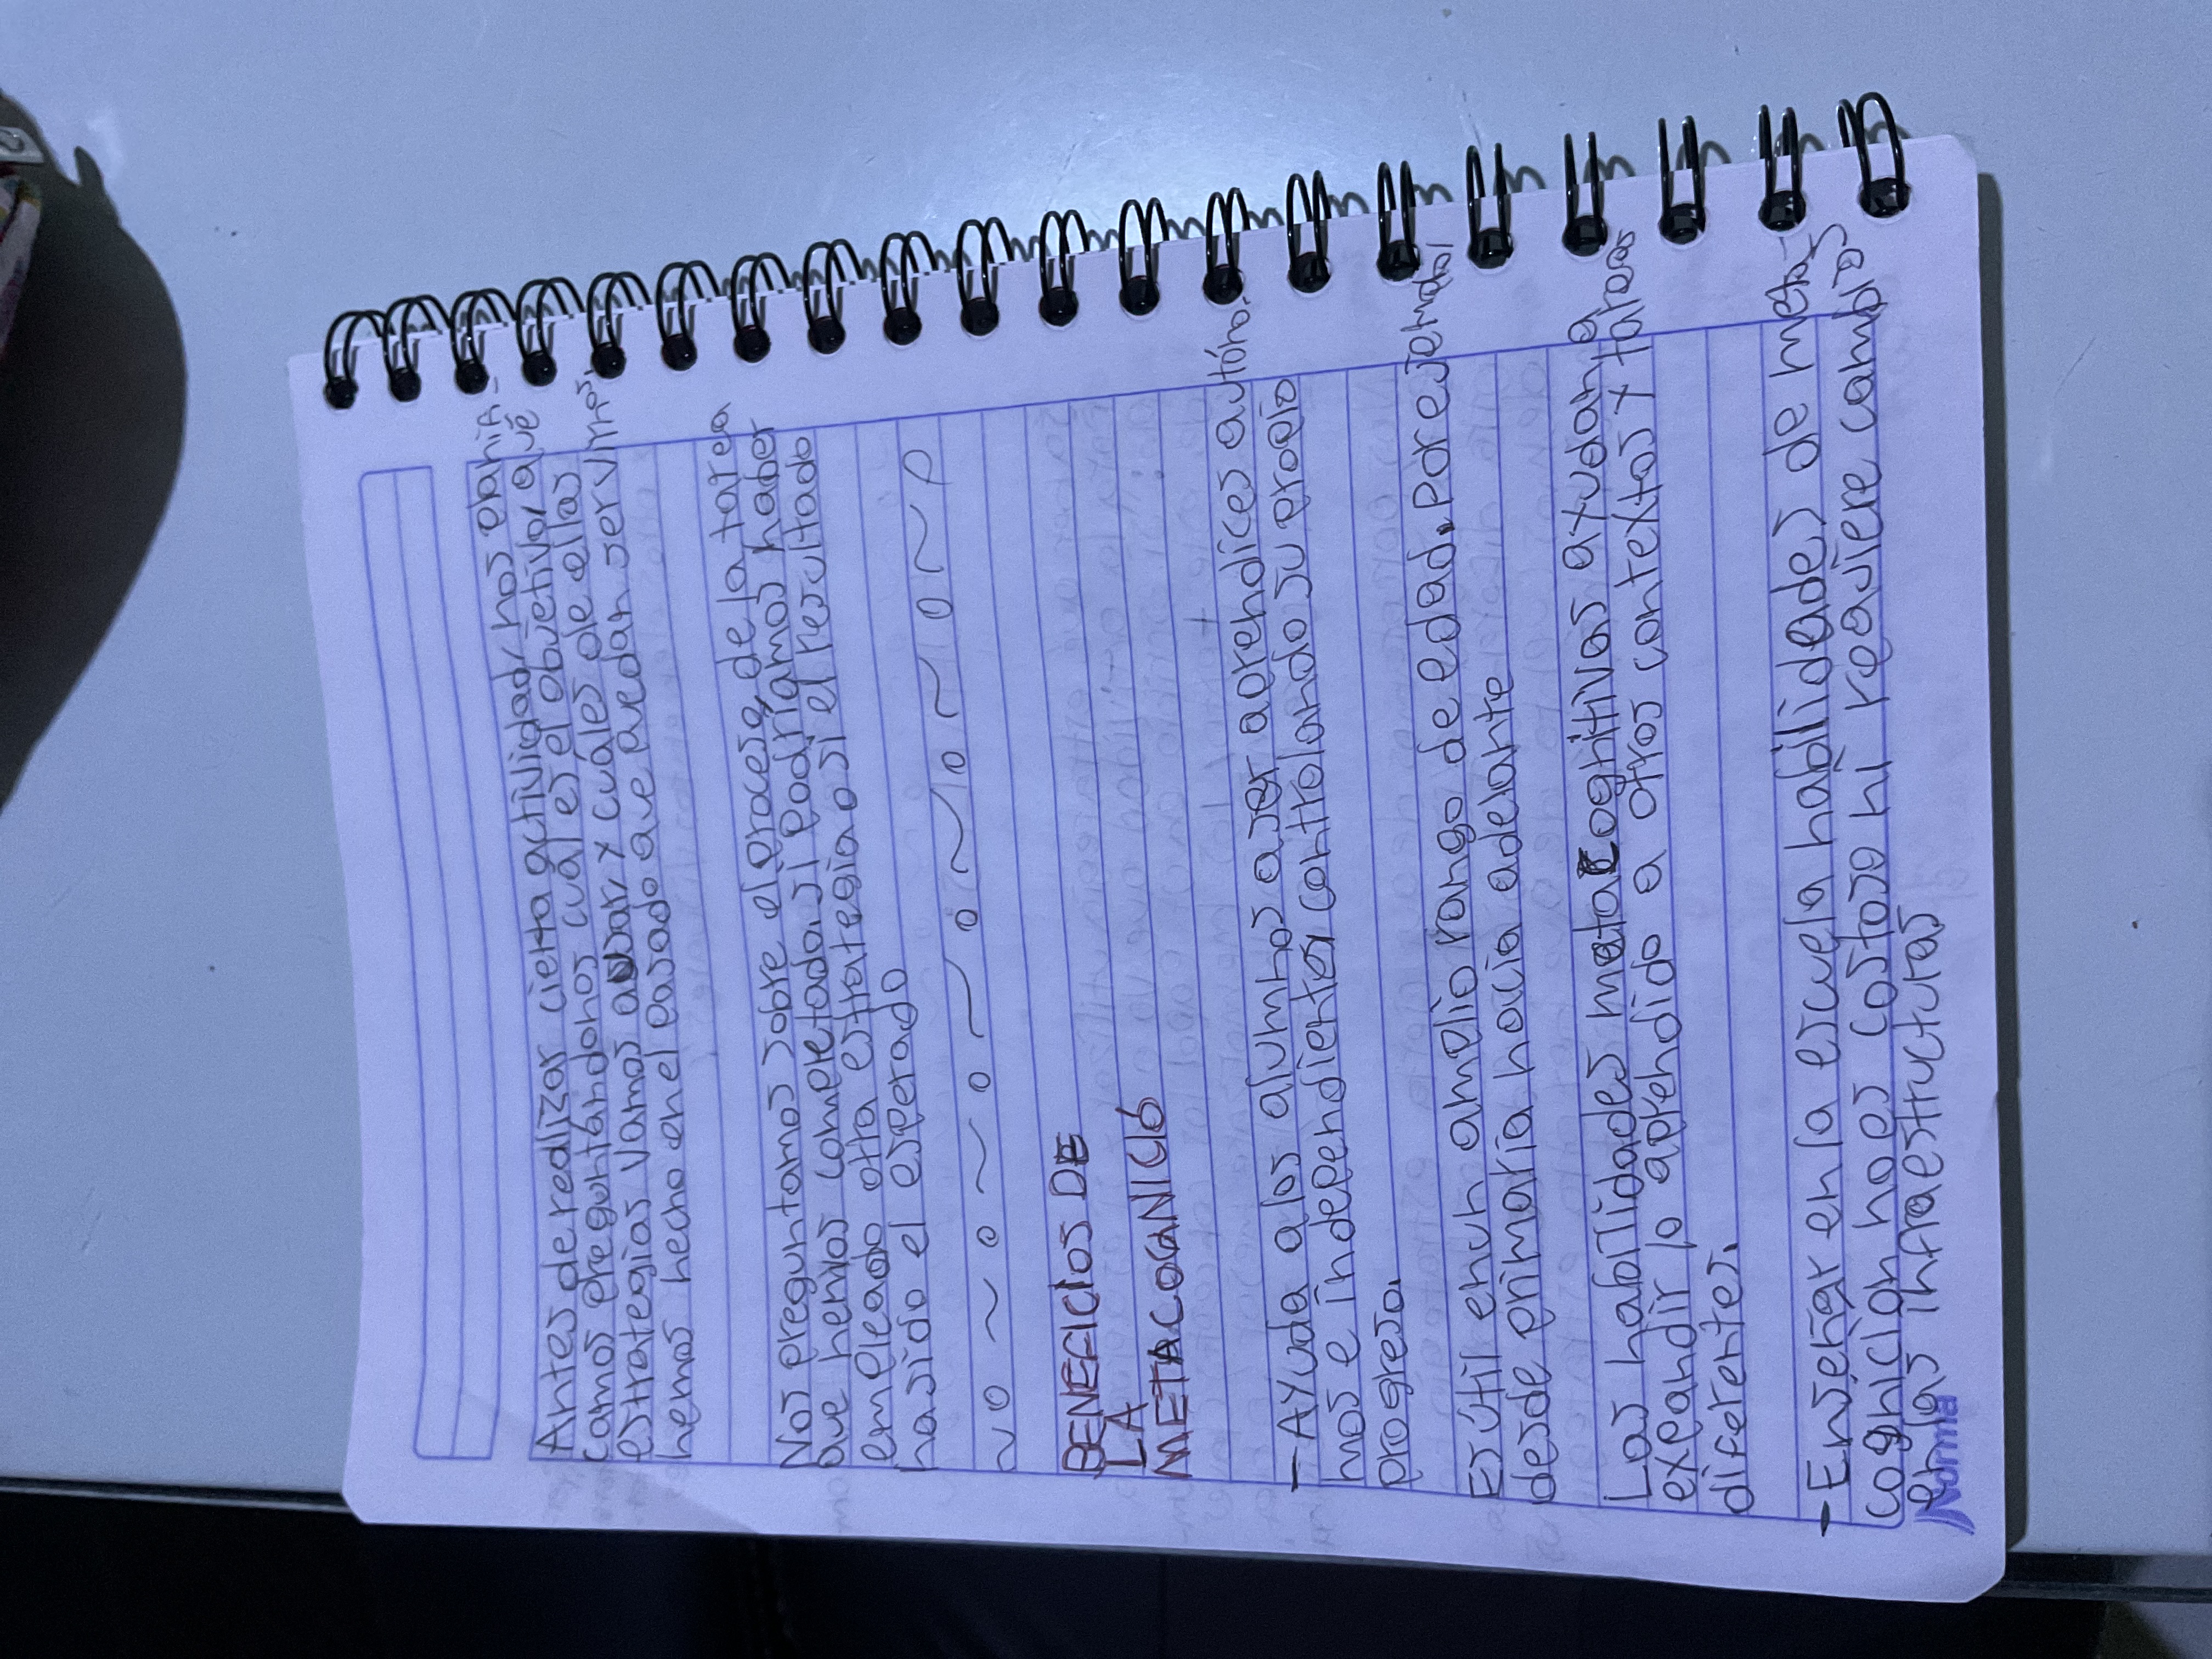 Antes de realizar cierta actividad, nos plani-
camos preguntándonos cuál es el objetivo, qué
estrategias vamos a usar, y cuáles de ellas
hemos hecho en el pasado que puedan servirnos.
Nos preguntamos sobre el proceso, de la tarea
que hemos completada, si podríamos haber
empleado otra estrategia o si el resultado
ha sido el esperado
BENEFICIOS DE
LA
METACOGNICIÓ
- Ayuda a los alumnos a ser aprendices autóno-
mos e independientes, controlando su propio
progreso.
Es útil en un amplio rango de edad. Por ejemplo,
desde primaria hacia adelante
Las habilidades metacognitivas ayudan a
expandir lo aprendido a otros contextos y tareas
diferentes.
- Enseñar en la escuela habilidades de meta-
cognición no es costoso ni requiere cambios
en las infraestructuras
Norma